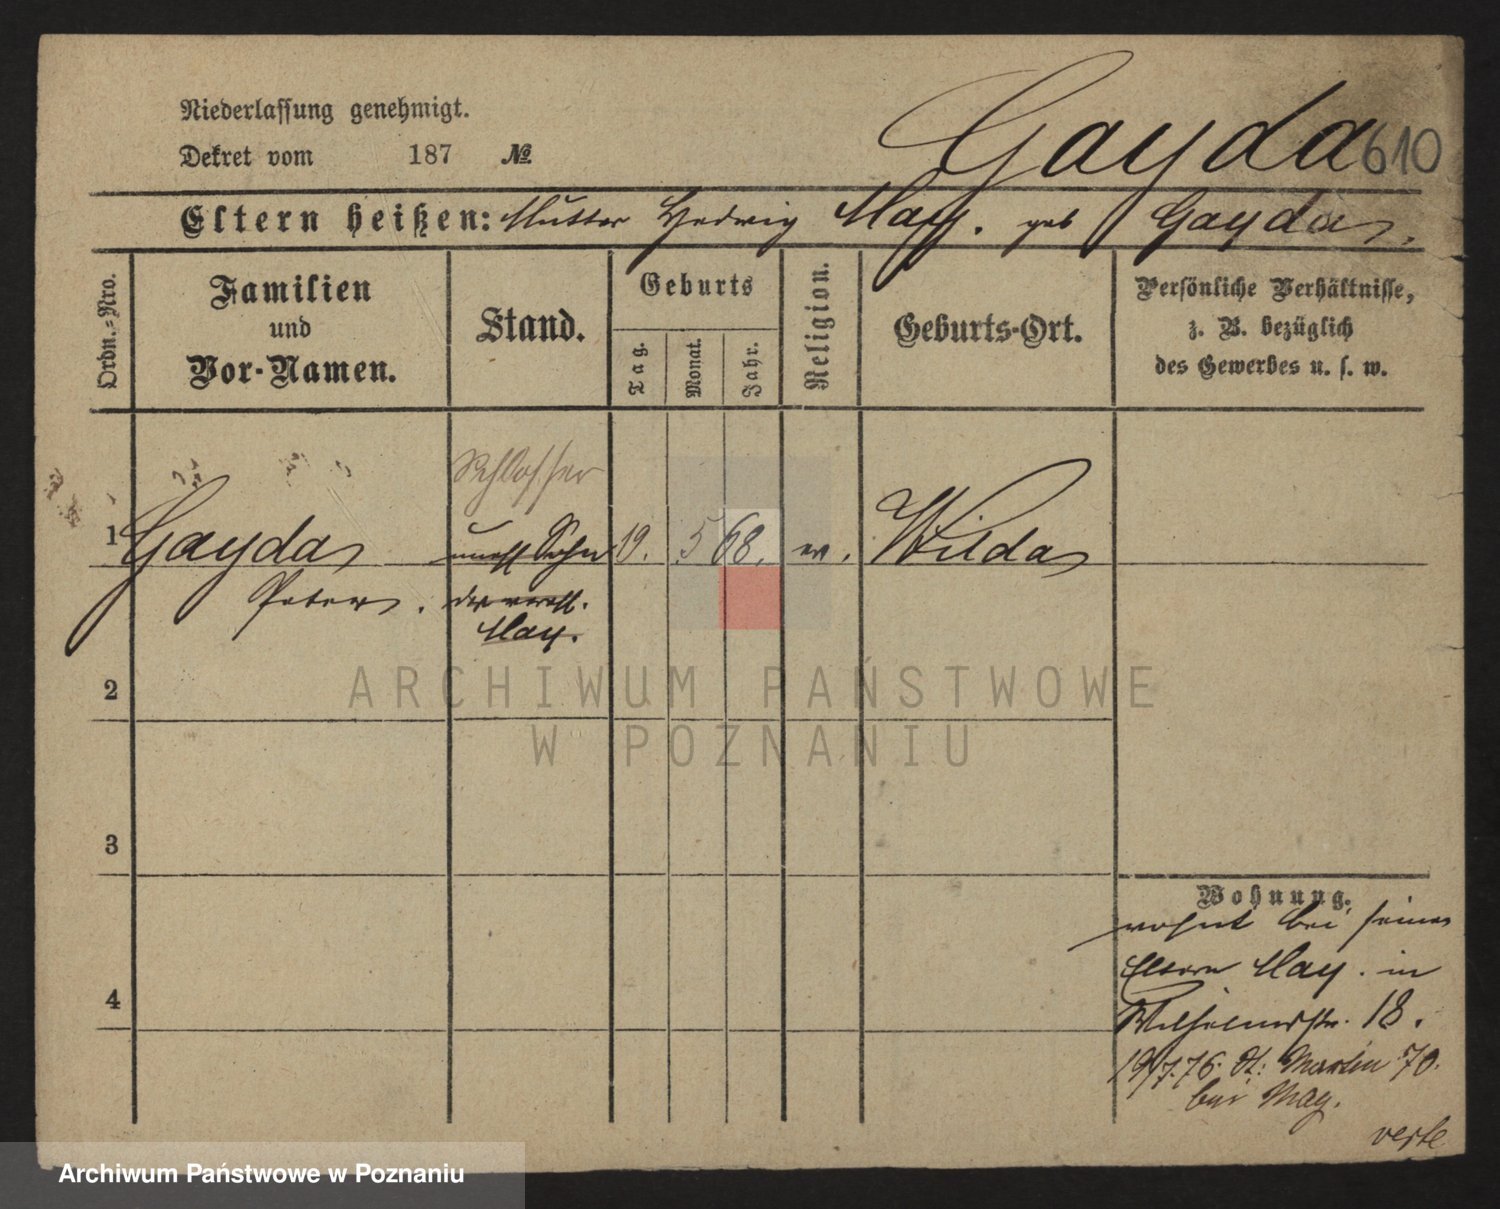 Niederlassung genehmigt.
Dekret vom 187 №
Gayda 610
Eltern heißen: Mutter Hedwig May. geb Gayda.
Ordn.-Nro.
Familien
und
Vor-Namen.
Stand.
Geburts
Tag.
Monat.
Jahr.
Religion.
Geburts-Ort.
Persönliche Verhältnisse,
z. B. bezüglich
des Gewerbes u. s. w.
Schlosser
1 Gayda unehl Sohn 19. 5 68. Wilda
Peter. der verehl.
May.
2
ARCHIWUM PAŃSTWOWE
W POZNANIU
3
4
Wohnung.
wohnt bei seinen
Eltern May. in
Wilhelmstr. 18.
19/7.76. St: Martin 70.
bei May.
verte
Archiwum Państwowe w Poznaniu